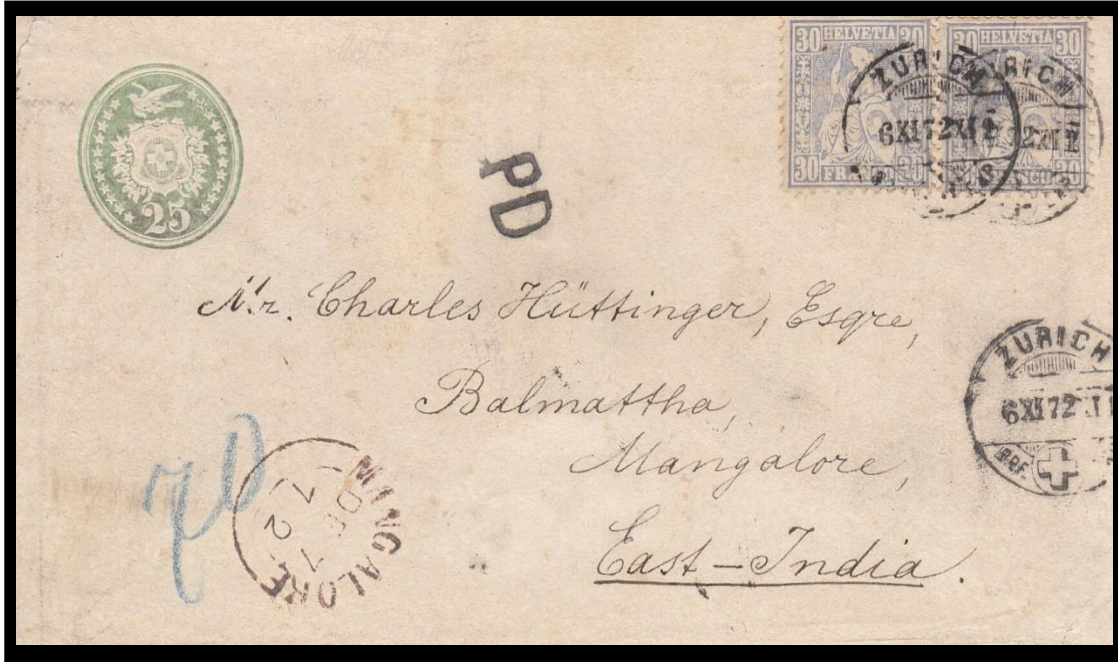 30 HELVETIA 30
30 FRANCO 30
30 HELVETIA 30
30 FRANCO 30
ZURICH
6XI72XI1
ZURICH
2XI1
25
PD
Mr. Charles Hüttinger, Esqre,
Balmattha,
Mangalore,
East-India.
ZURICH
6XI72
BRF
MANGALORE
DE 7
72